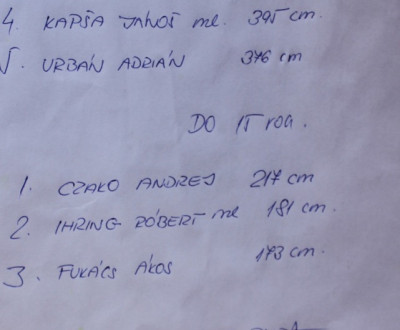 4. KAPŠA JÁNOŠ ml. 395 cm.
5. URBÁN ADRIÁN 376 cm
DO 15 rok.
1. CZAKO ANDREJ 217 cm
2. IHRING RÓBERT ml 181 cm.
3. FUKÁCS ÁKOS 173 cm.